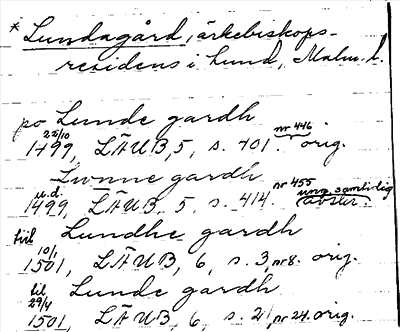 * Lundagård, ärkebiskops-
residens i Lund, Malm. l.
po Lunde gardh
25/10 1499, LÄUB, 5, s. 401. nr 446 orig.
Lwnne gardh
u.d. 1499, LÄUB 5, s. 414. nr 455 ung. samtidig avskr.
till Lundhe gardh
10/1 1501, LÄUB, 6, s. 3, nr 8. orig.
til Lunde gardh
29/4 1501, LÄUB, 6, s. 21, nr 24. orig.